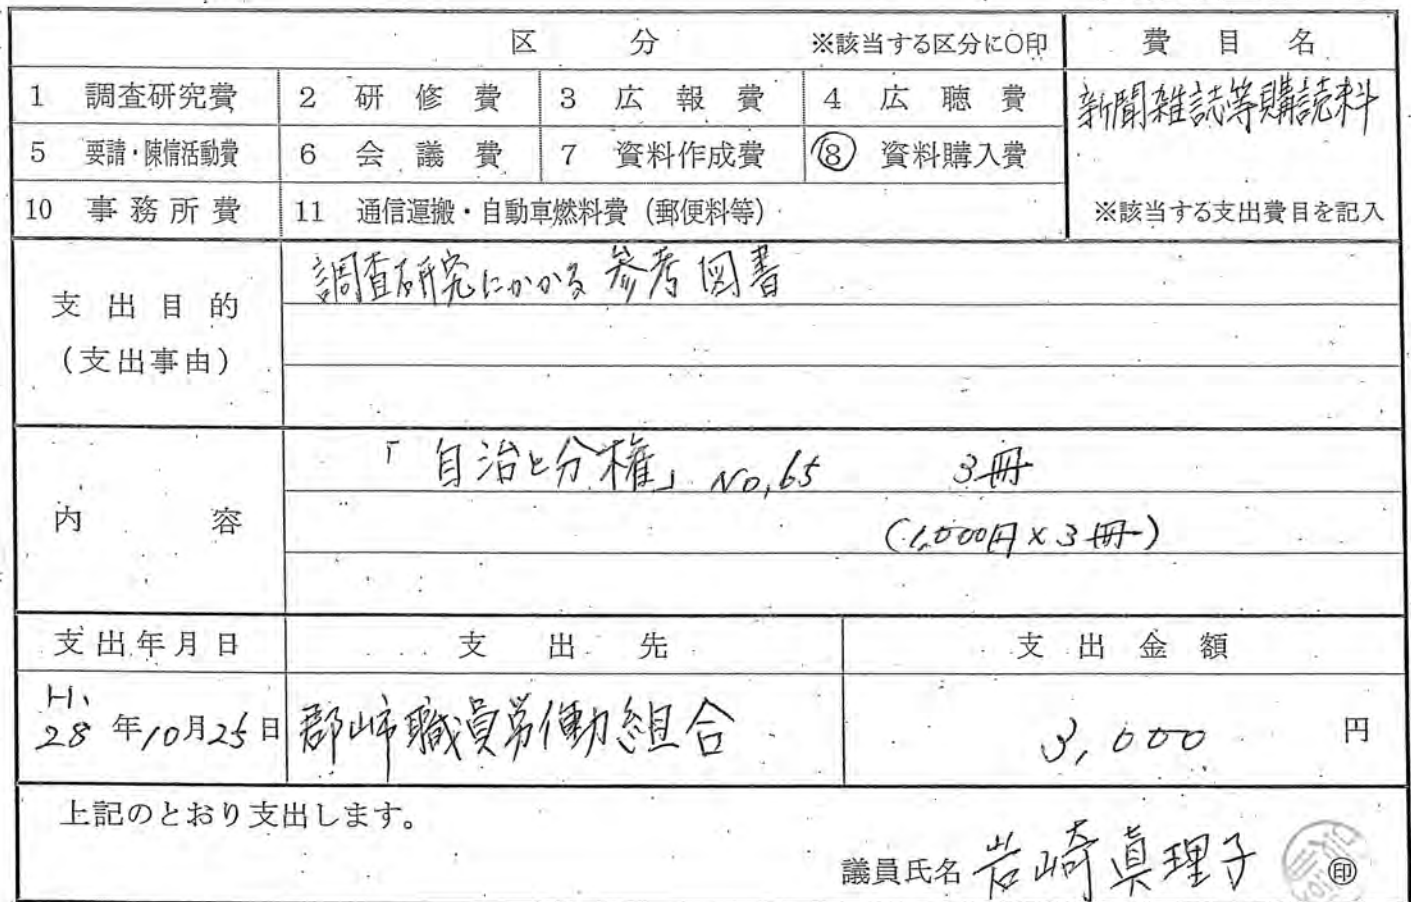 区 分 ※該当する区分に○印 費目名
1 調査研究費 2 研修費 3 広報費 4 広聴費 新聞雑誌等購読料
5 要請・陳情活動費 6 会議費 7 資料作成費 ⑧ 資料購入費
10 事務所費 11 通信運搬・自動車燃料費（郵便料等） ※該当する支出費目を記入
支出目的 調査研究にかかる参考図書
（支出事由）
「自治と分権」 No,65 3冊
内容 (1,000円×3冊)
支出年月日 支出先 支出金額
H.
28年10月25日 郡山市職員労働組合 3,000円
上記のとおり支出します。
議員氏名 岩崎真理子 ㊞